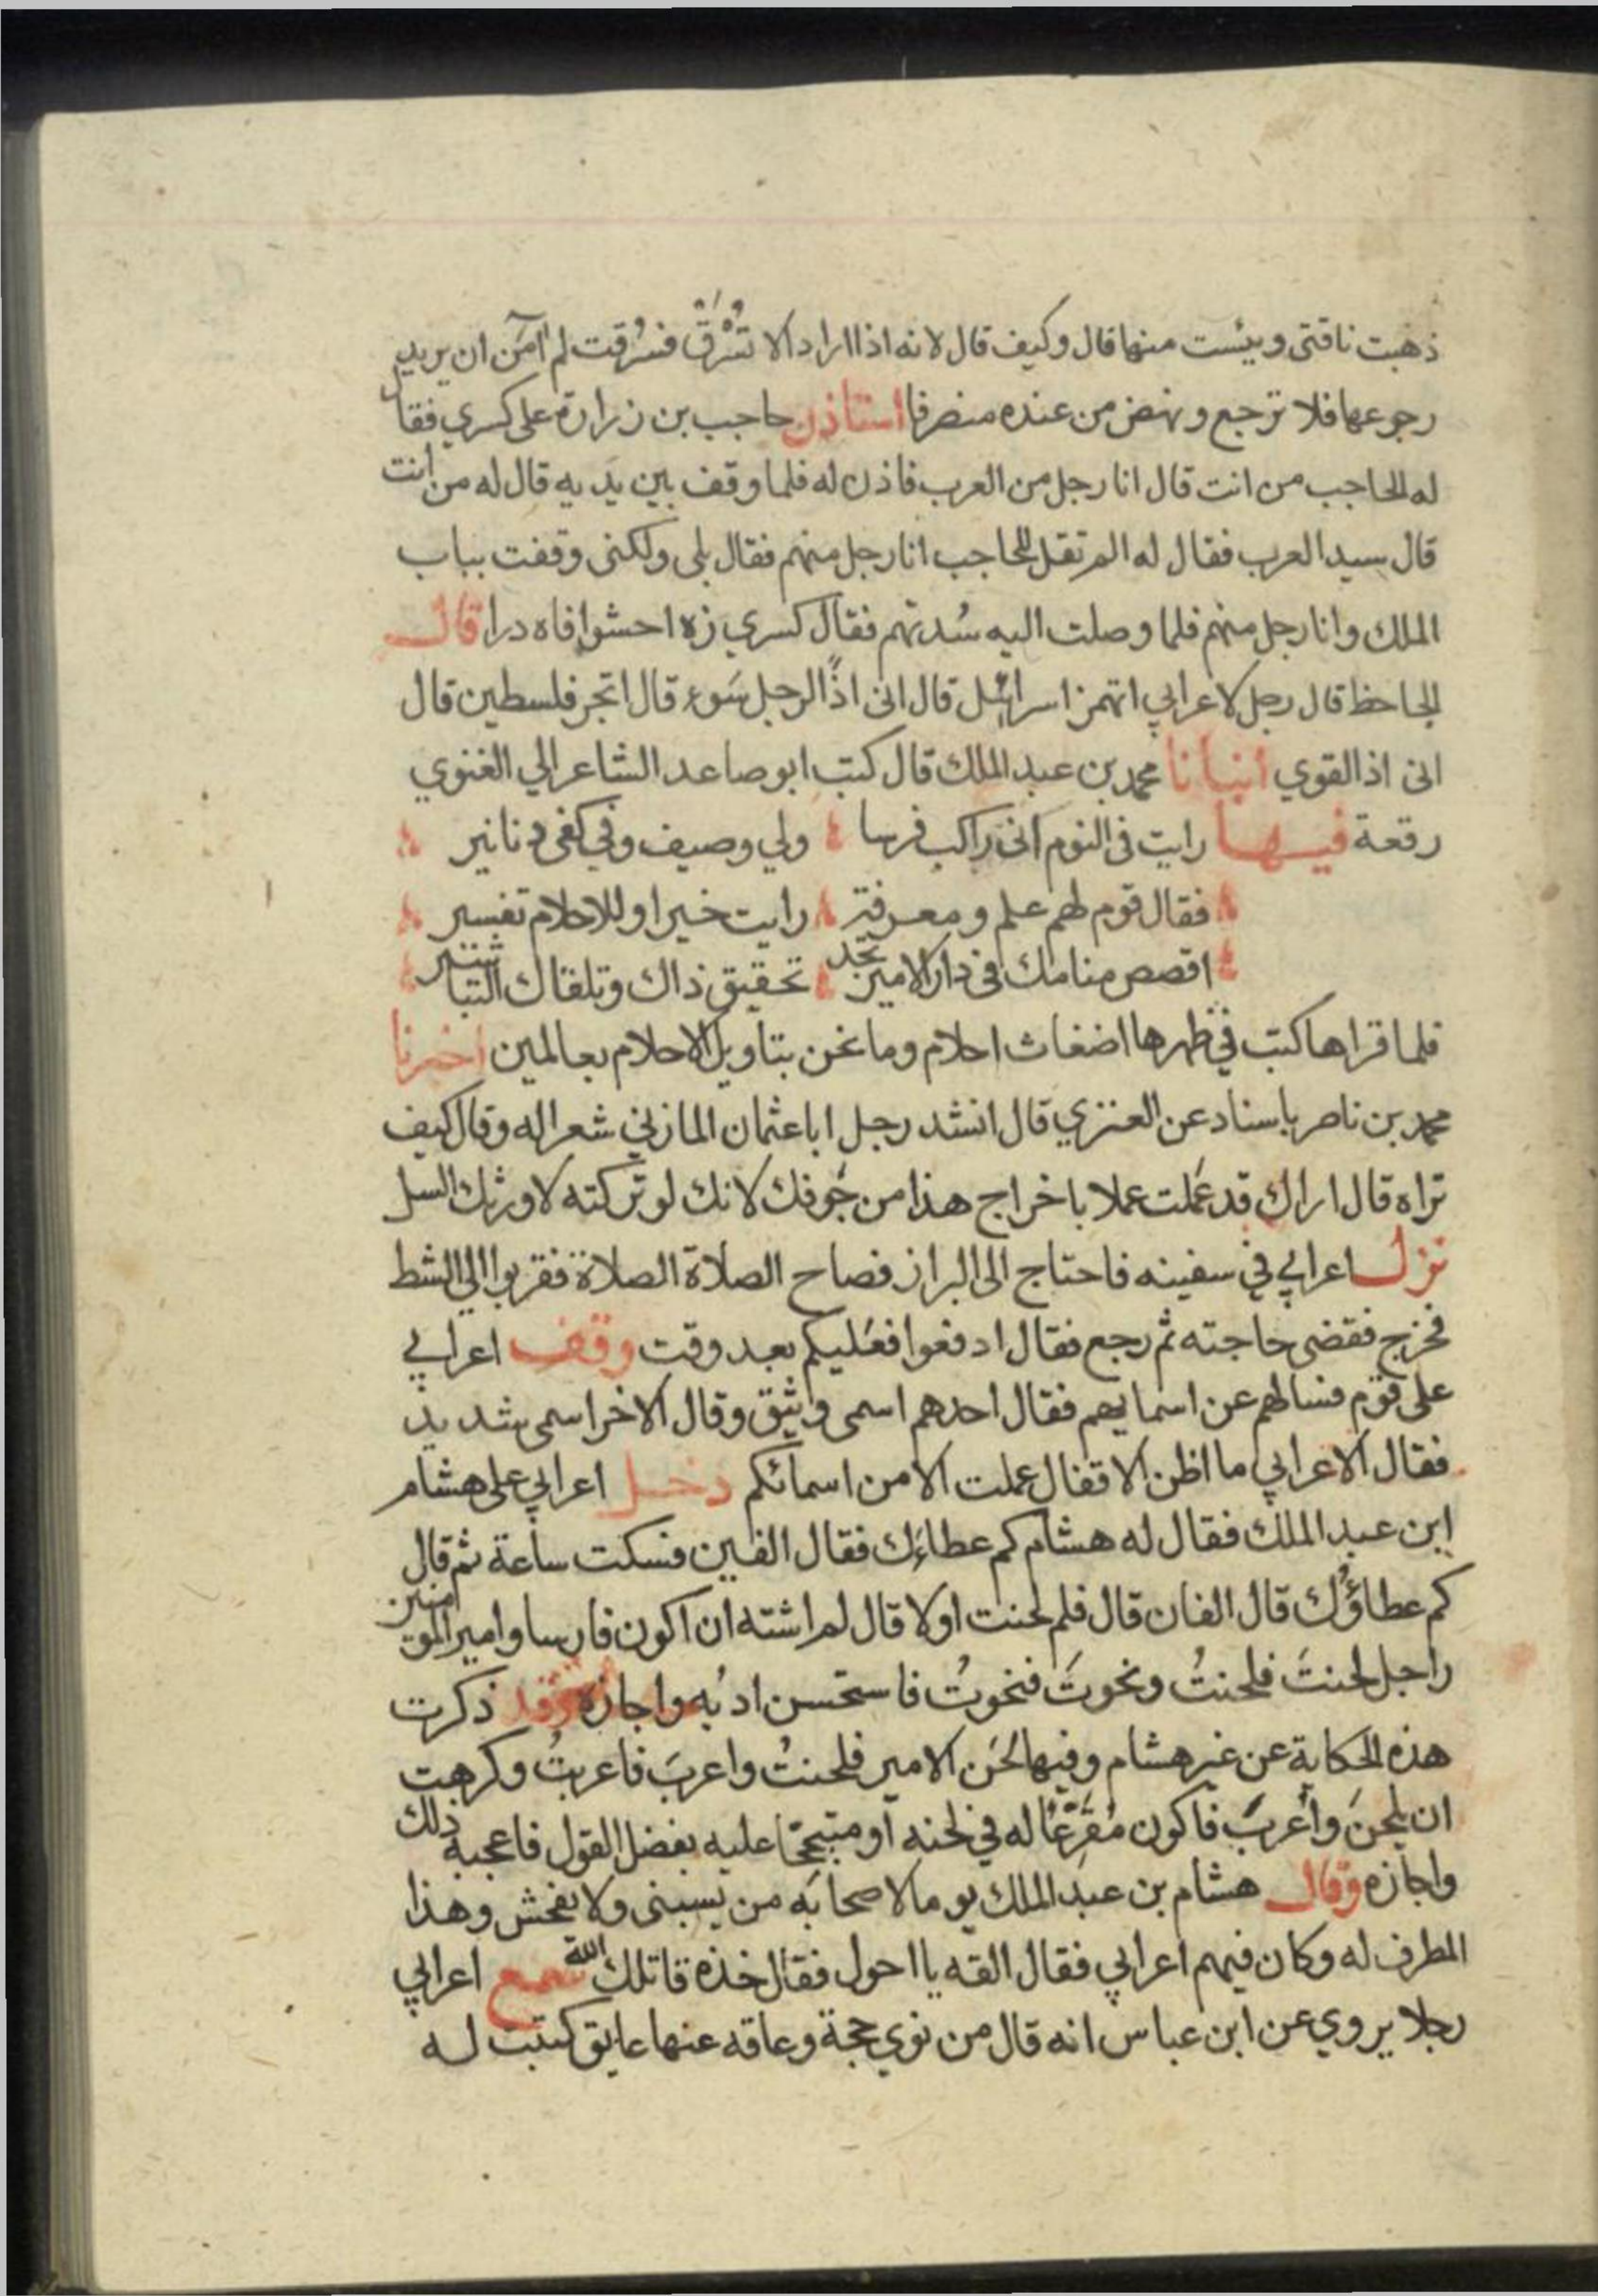 ذهبت ناقتي ويئست منها قال وكيف قال لانه اذا اراد الا تُسْرَقُ فسُرقت لم آمَن ان يريد
رجوعها فلا ترجع ونهض من عنده منصرفا استاذن حاجب بن زرارة على كسري فقال
له الحاجب من انت قال انا رجل من العرب فاذن له فلما وقف بين يديه قال له من انت
قال سيد العرب فقال له الم تقل للحاجب انا رجل منهم فقال بلى ولكنى وقفت بباب
الملك وانا رجل منهم فلما وصلت اليه سُدتهم فقال كسري زه احشوا فاه درا قال
الجاحظ قال رجل لاعرابي اتهمز اسرائيل قال انى اذًا لرجل سَوء قال اتجر فلسطين قال
انى اذا لقوي انبانا محمد بن عبد الملك قال كتب ابو صاعد الشاعر الي الغنوي
رقعة فيها رايت فى النوم انى راكب فرسا ولي وصيف وفي كفى دنانير
فقال قوم لهم علم ومعرفة رايت خيرا وللاحلام تفسير
اقصص منامك فى دار الامير تجد تحقيق ذاك وتلقاك التباشير
فلما قراها كتب في ظهرها اضغاث احلام وما نحن بتاويل الاحلام بعالمين اخبرنا
محمد بن ناصر باسناد عن العنزي قال انشد رجل ابا عثمان المازني شعرا له وقال كيف
تراه قال اراك قد عَملت عملا باخراج هذا من جَوفك لانك لو تركته لاورثك السل
نزل اعرابي في سفينه فاحتاج الى البراز فصاح الصلاة الصلاة فقربوا الي الشط
فخرج فقضى حاجته ثم رجع فقال ادفعوا فعَليكم بعد وقت وقف اعرابي
على قوم فسالهم عن اسمايهم فقال احدهم اسمى وثيق وقال الاخر اسمى شديد
فقال الاعرابي ما اظن الاقفال عملت الا من اسمائكم دخل اعرابي على هشام
ابن عبد الملك فقال له هشام كم عطاءَك فقال الفين فسكت ساعة ثم قال
كم عطاؤُك قال الفان قال فلم لحنت اولا قال لم اشته ان اكون فارسا وامير المومنين
راجل لحنتَ فلحنتُ ونحوتَ فنحوتُ فاستحسن ادبُه واجازه وقد ذكرت
هذه الحكاية عن غير هشام وفيها لحَن الامير فلحنتُ واعربَ فاعربتُ وكرهت
ان يلحنَ وأعربَ فاكون مُقَرِّعًا له في لحنه او متبجحًا عليه بفضل القول فاعجبه ذلك
واجازه وقال هشام بن عبد الملك يوما لاصحابَه من يسبنى ولا يفحش وهذا
المطرف له وكان فيهم اعرابي فقال القه يا احول فقال خذه قاتلك الله سمع اعرابي
رجلا يروي عن ابن عباس انه قال من نوي حجة وعاقه عنها عايق كتبت له